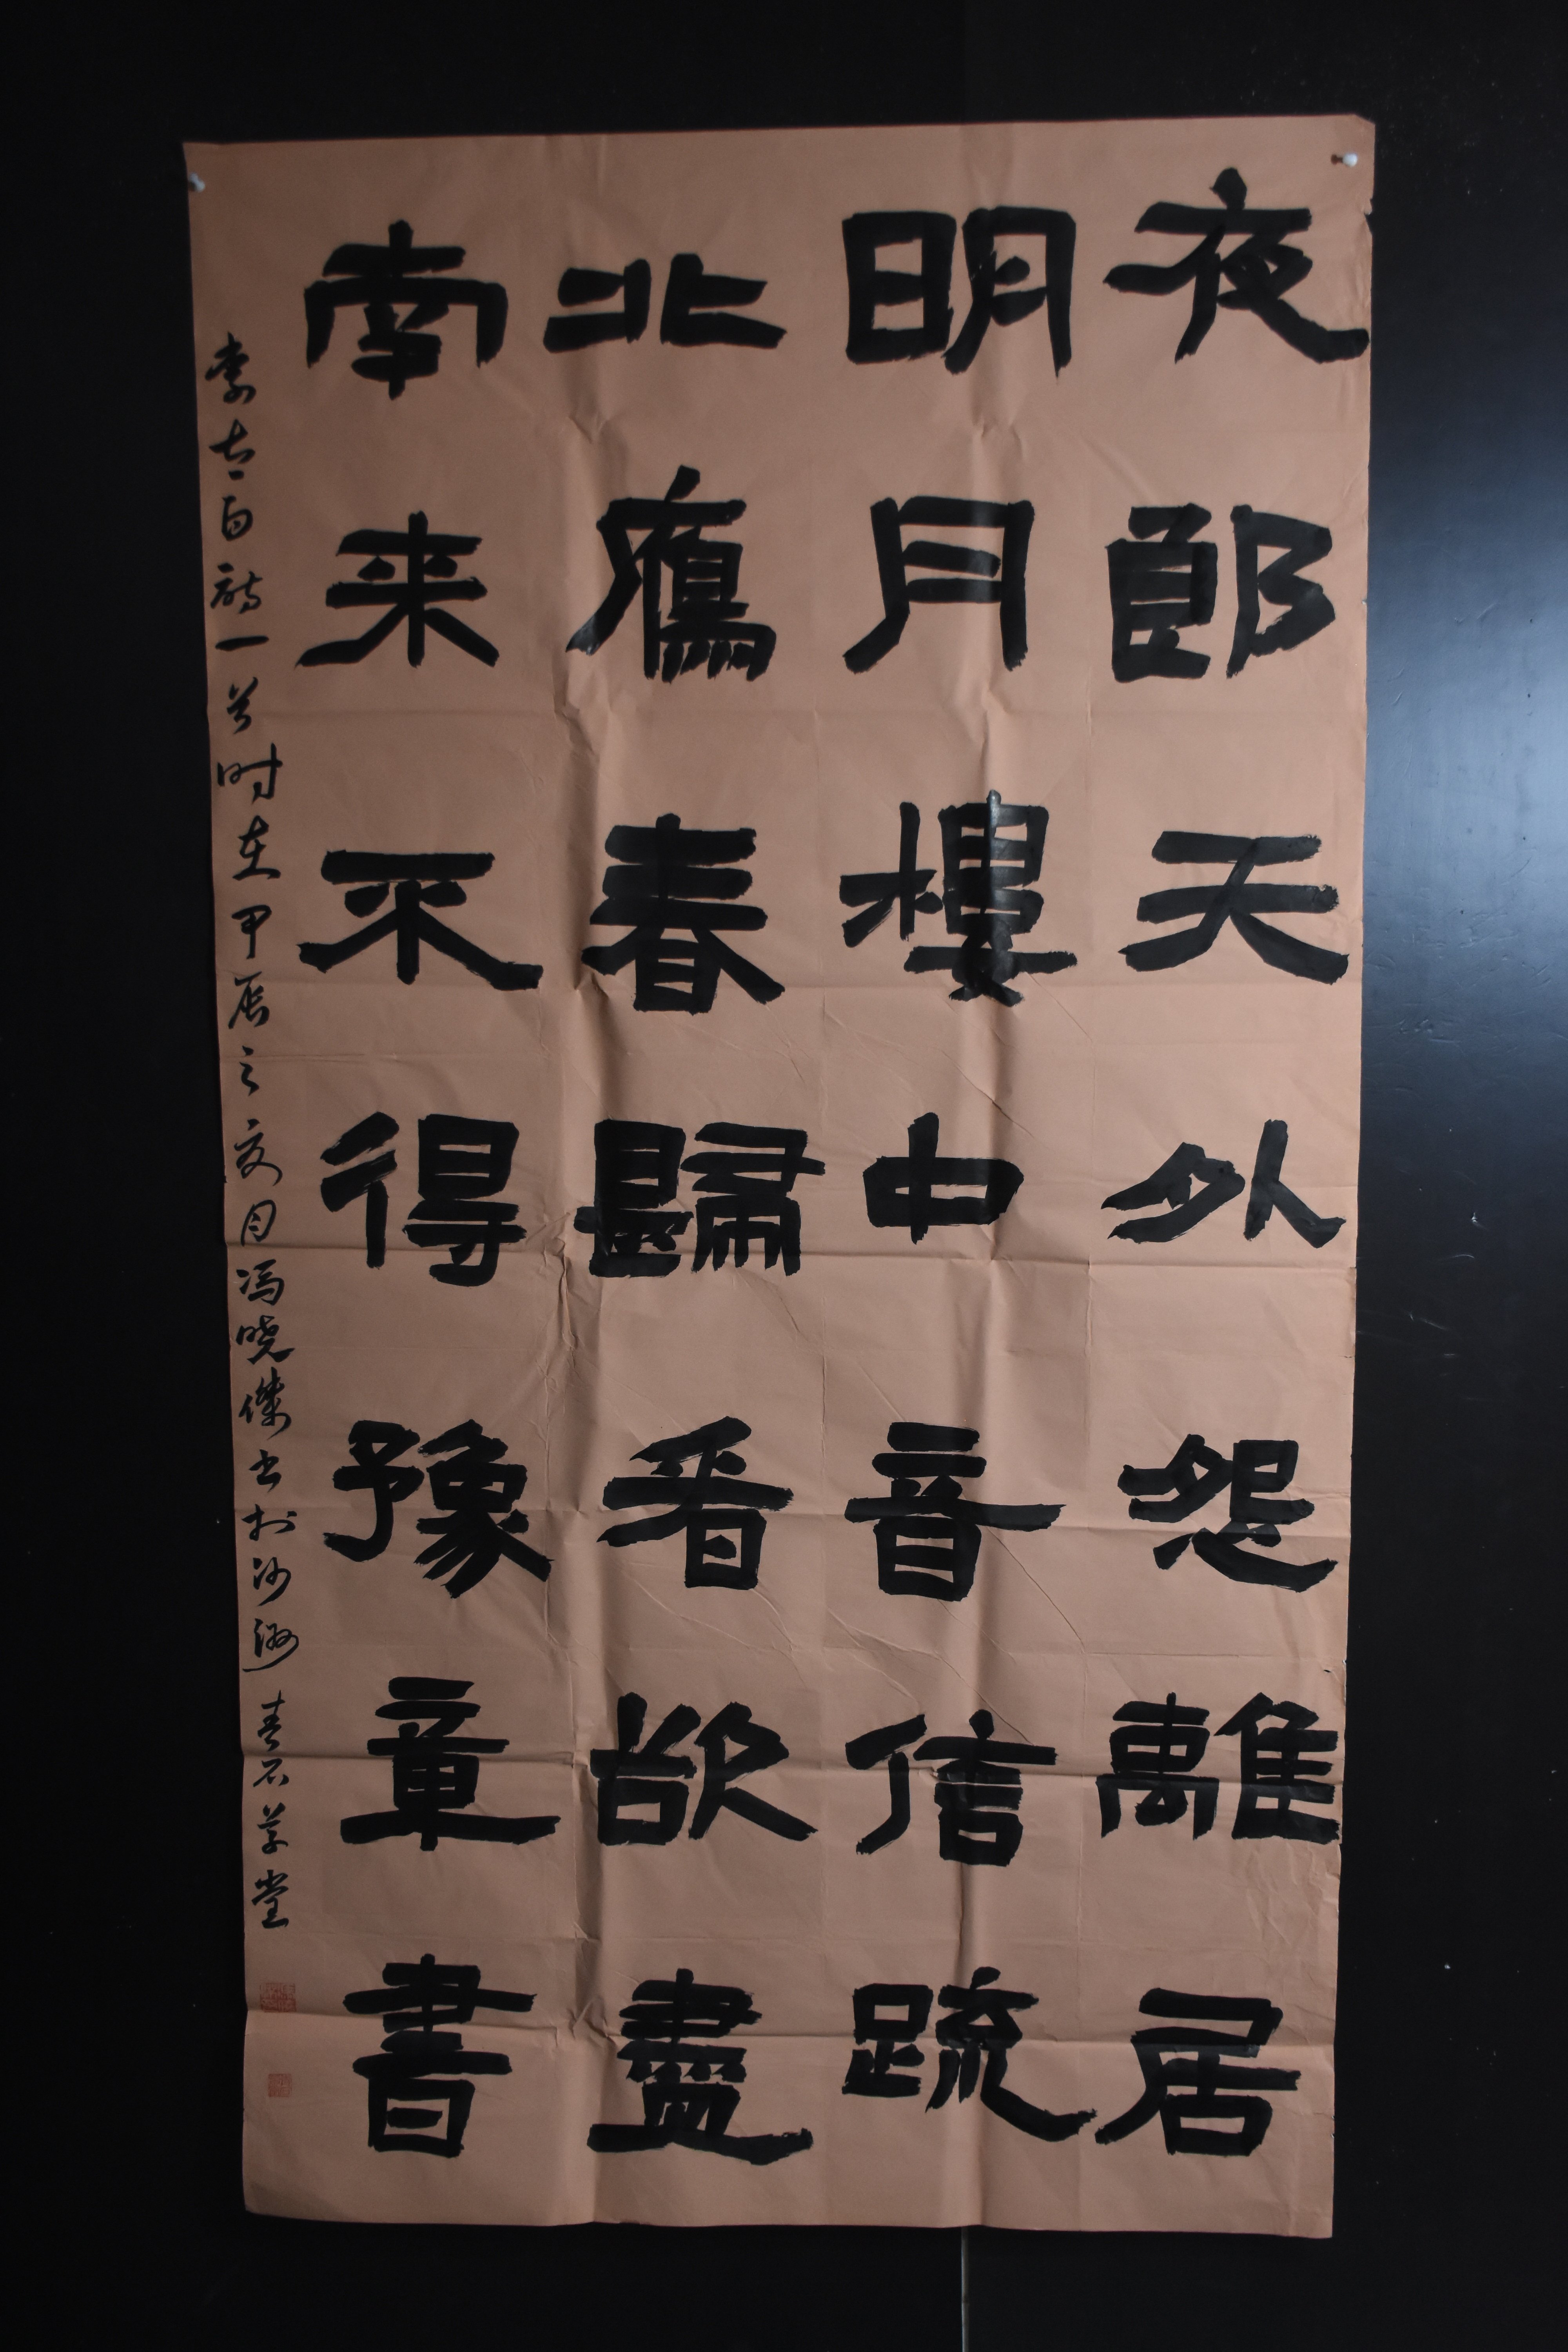 夜郎天外怨離居
明月樓中音信疏
北鴈春歸看欲盡
南来不得豫章書
李太白詩一首时在甲辰之夏月冯晓傑书於沙青石草堂